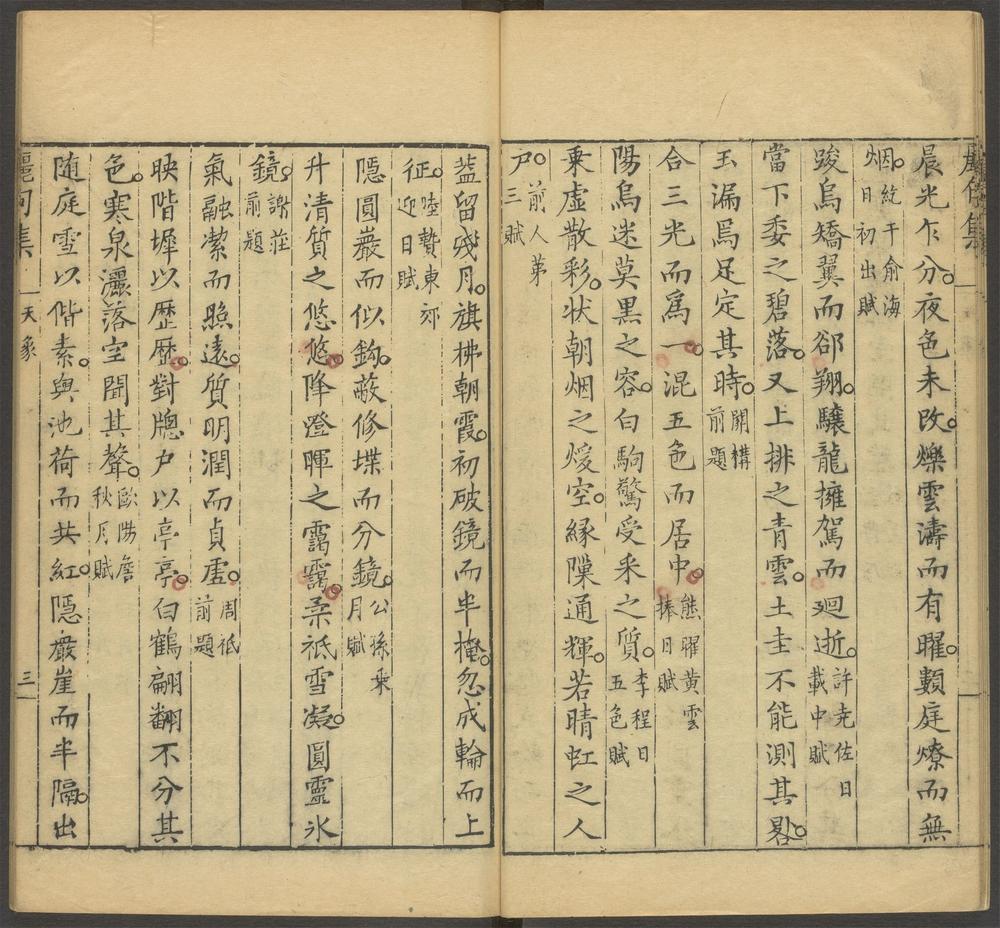 麗句集
晨光乍分。夜色未改。爍雲濤而有曜。類庭燎而無
烟。紇干俞海
日初出賦
踆烏矯翼而郤翔。驤龍擁駕而廻逝。許尭佐日
載中賦
當下委之碧落。又上排之青雲。土圭不能測其晷。
玉漏焉足定其時。開構
前題
合三光而爲一。混五色而居中。熊曜黄雲
捧日賦
陽烏迷莫黒之容。白駒驚受采之質。李程日
五色賦
乘虛散彩。状朝烟之煖空。縁隟通輝。若晴虹之人
戸。前人第
三賦
葢留殘月。旗拂朝霞。初破鏡而半掩。忽成輪而上
征。陸贄東郊
迎日賦
隱圓巖而似鈎。蔽修堞而分鏡。公孫乗
月賦
升清質之悠悠。降澄暉之靄靄。柔祇雪凝。圓靈氷
鏡。謝莊
前題
氣融潔而照遠。質明潤而貞虛。周祇
前題
映階墀以歷歷。對牕戸以亭亭。白鶴翩翻不分其
色。寒泉灑落空聞其聲。歐陽詹
秋月賦
随庭雪以偕素。與池荷而共紅。隱巖崖而半隔。出
麗句集
天象
三